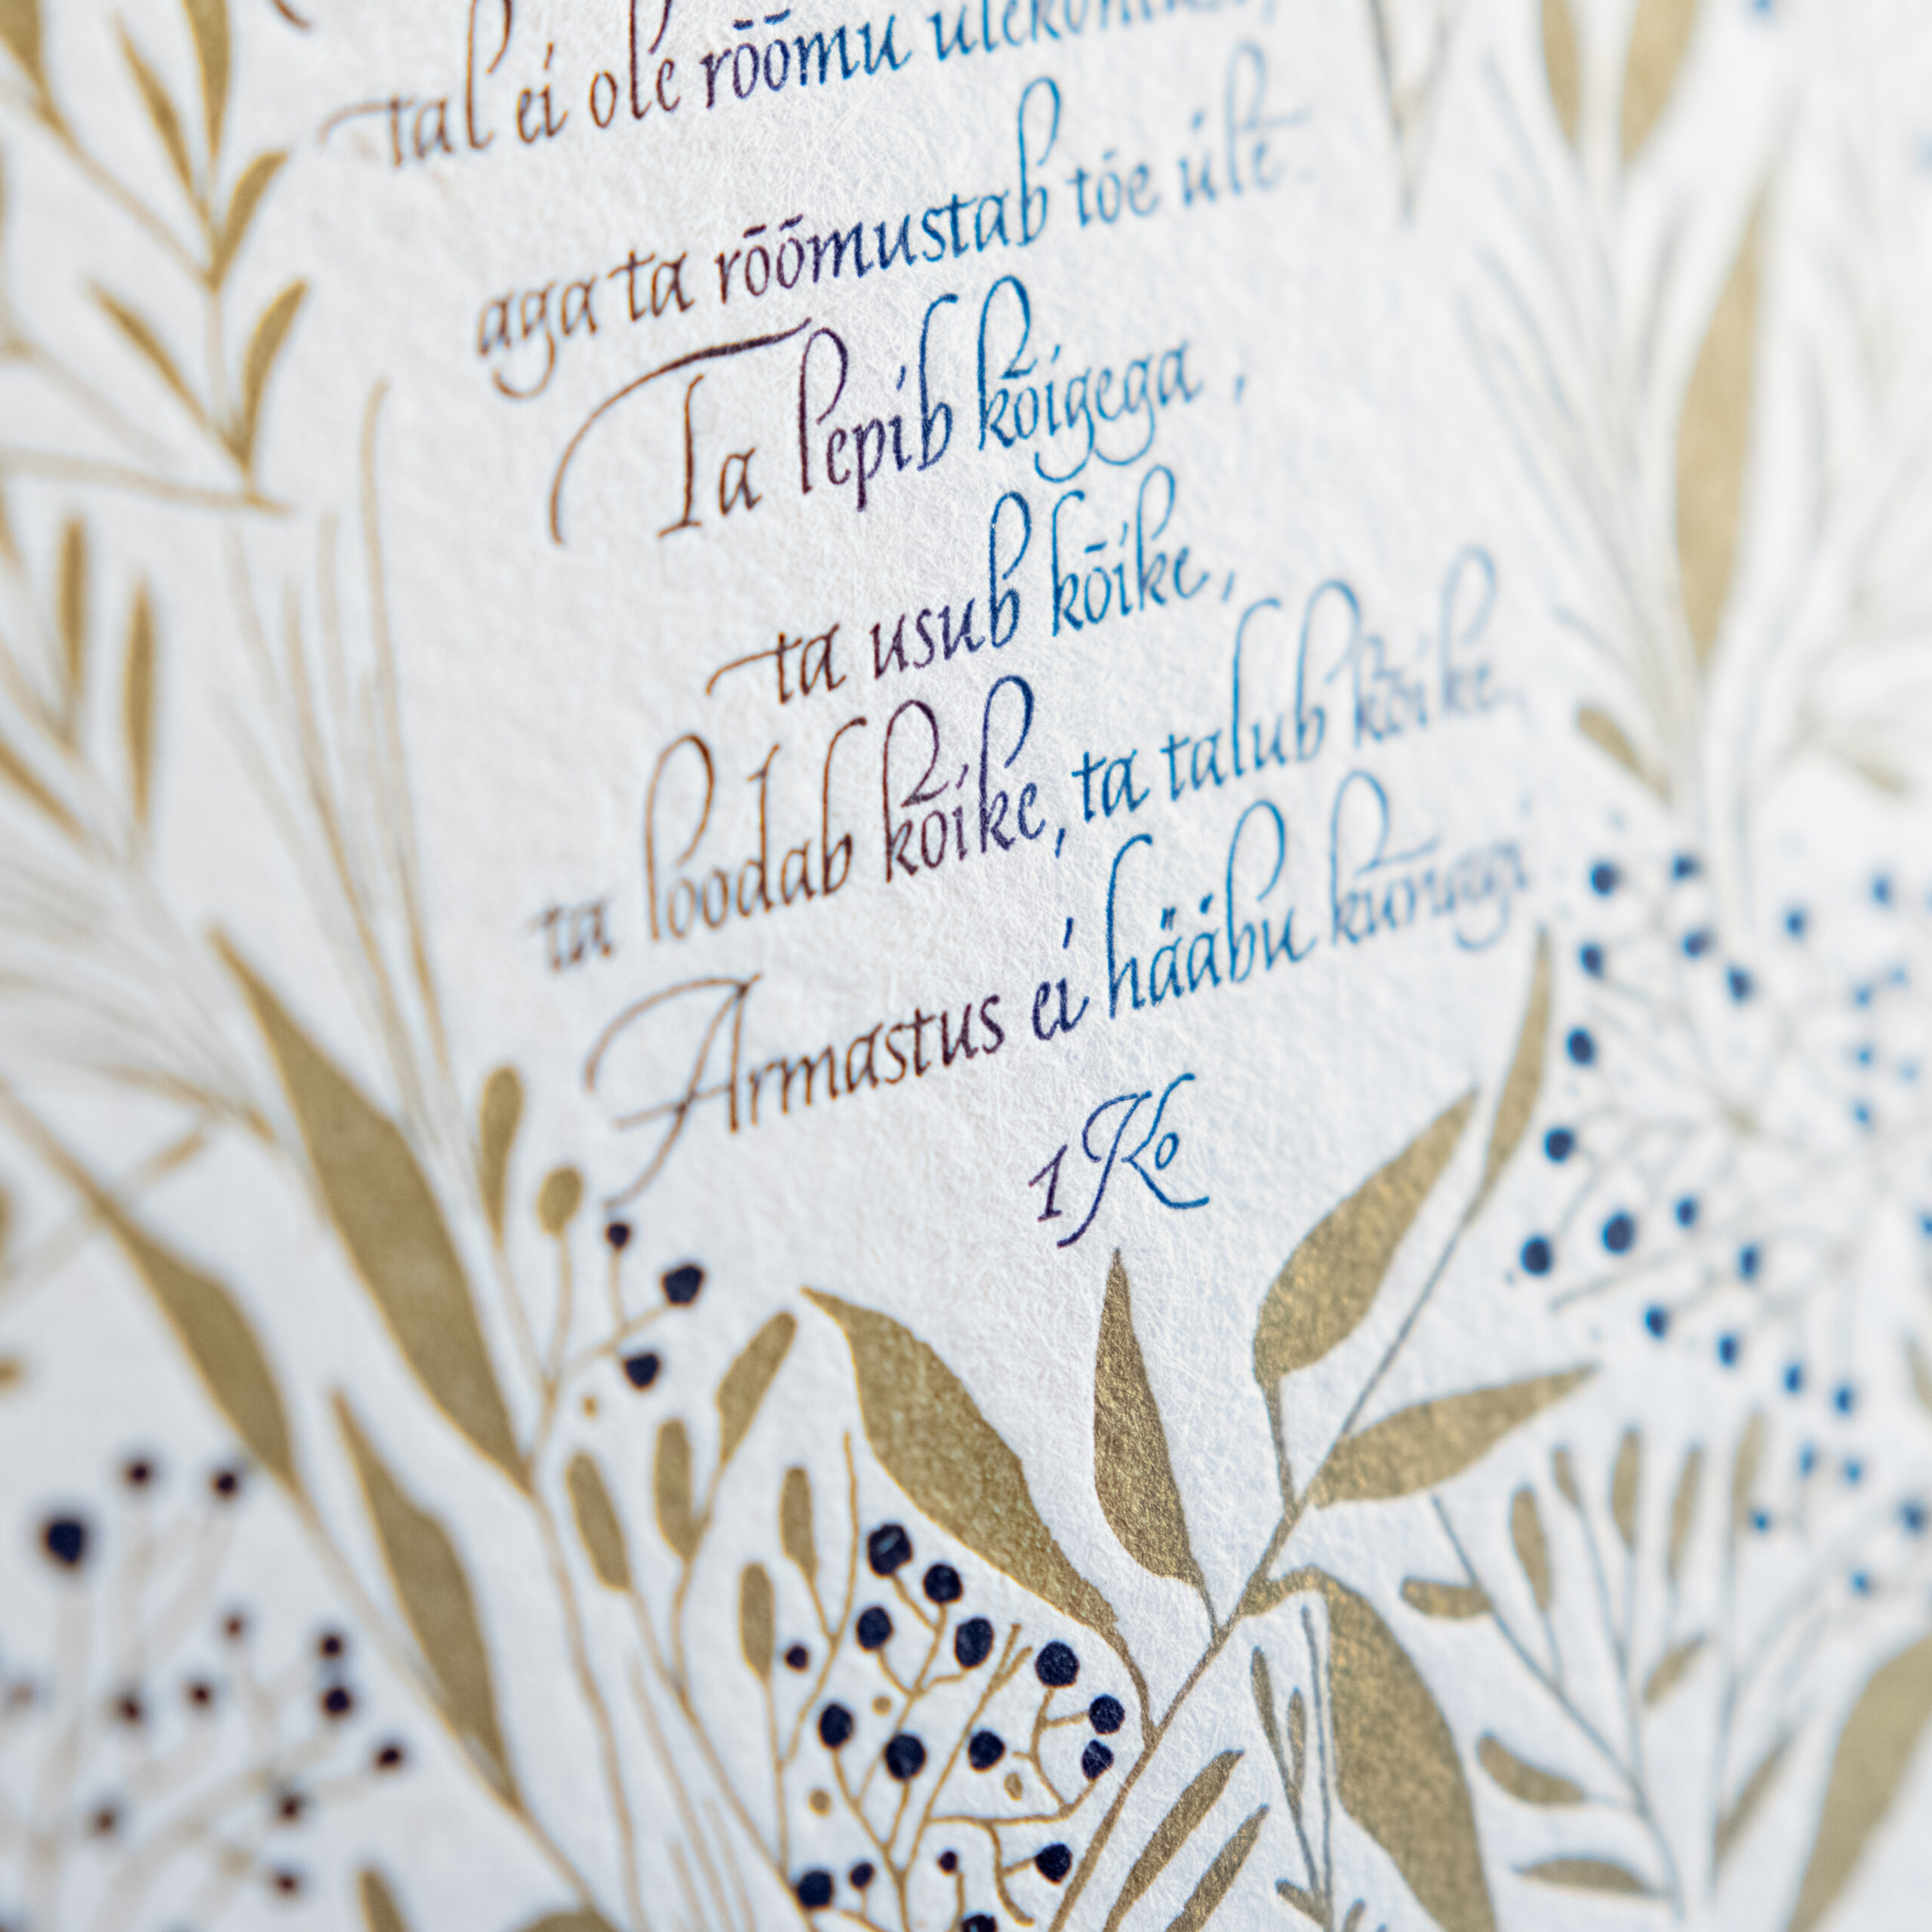 tal ei ole rõõmu ülekohtust,
aga ta rõõmustab tõe üle.
Ta lepib kõigega,
ta usub kõike,
ta loodab kõike, ta talub kõike
Armastus ei hääbu kunagi
1Ko